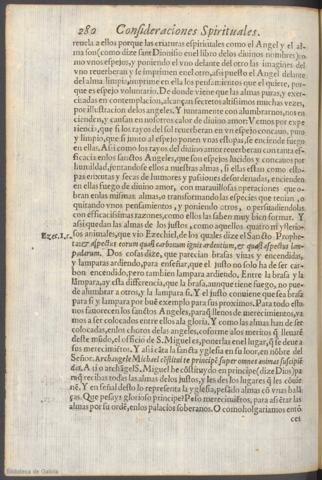 280 Consideraciones Spirituales.
reuela a ellos porque las criaturas espirituales como el Angel y el al-
ma son (como dize sant Dionisio en el libro delos diuinos nombres) co-
mo vnos espejos, y poniendo el vno delante del otro las imagines del
vno reuerberan y se imprimen enel otro, assi puesto el Angel delante
del alma limpia, imprime en ella los pensamientos que el quiere, por-
que es espejo voluntario. De donde viene que las almas puras, y exer-
citadas en contemplacion, alcançan secretos altissimos muchas vezes,
por illustracion delos angeles. Y juntamente con alumbrarnos, nos en
cienden, y causan en nosotros calor de diuino amor: Vemos por expe
riencia, que si los rayos del sol reuerberan en vn espejo concauo, puro
y limpio, que si junto al espejo ponen vnas estopas, se enciende fuego
en ellas. Assi como los rayos del diuino amor reuerberan con tanta ef-
ficacia enlos sanctos Angeles, que son espejos lucidos y concauos por
humildad, juntandose ellos a nuestras almas, si ellas estan como esto-
pas enxutas y secas de humores y passiones desordenadas, encienden
en ellas fuego de diuino amor, con marauillosas operaciones que o-
bran enlas mismas almas, o transformando las especies que tenian, o
quitando vnos pensamientos, y poniendo otros, o persuadiendolas
con efficacissimas razones, como ellos las saben muy bien formar. Y
assi quedan las almas de los justos, como aquellos quatro mysterio-
Ezec. 1. c. sos animales, que vio Ezechiel, de los quales dize el Sancto Prophe-
ta: et aspectus eorum quasi carbonum ignis ardentium, et quasi aspectus lam-
padarum. Dos cosas dize, que parecian brasas viuas y encendidas,
y lamparas ardiendo, para enseñar, que el justo no solo ha de ser car-
bon encendido, pero tambien lampara ardiendo. Entre la brasa y la
lāmpara, ay esta differencia, que la brasa, aunque tiene fuego, no pue-
de alumbrar a otro, y la lampara si. Y el justo conuiene que sea brasa
para si y lampara por buē exemplo para sus proximos. Para todo esto
nos fauorecen los sanctos Angeles, paraq̄ llenos de merecimientos, va
mos a ser colocados entre ellos ala gloria. Y como las almas han de ser
colocadas, enlos choros delas angeles, cōforme alos meritos q̄ lleuarē
deste mūdo, el officio de S. Miguel es, ponerlas enel lugar, q̄ se deue a
sus merecimiētos. Y assi cāta la sancta yglesia en su loor, en nōbre del
Señor. Archangele Michael cōstitui te principē super omnes animas suscipiē
das. A ti o archāgel S. Miguel he cōstituydo en principe (dize Dios) pa
raq̄ recibas todas las almas delos justos, y les des los lugares q̄ les cōuie
nē. Y en señal desto lo representa la yglesia, pesādo almas cō vnas balā
ças. Que pesays glorioso principe? Peso merecimiētos, para assētar las
almas por su ordē, enlos palacios soberanos. O como holgariamos entō
ces
Biblioteca de Galicia